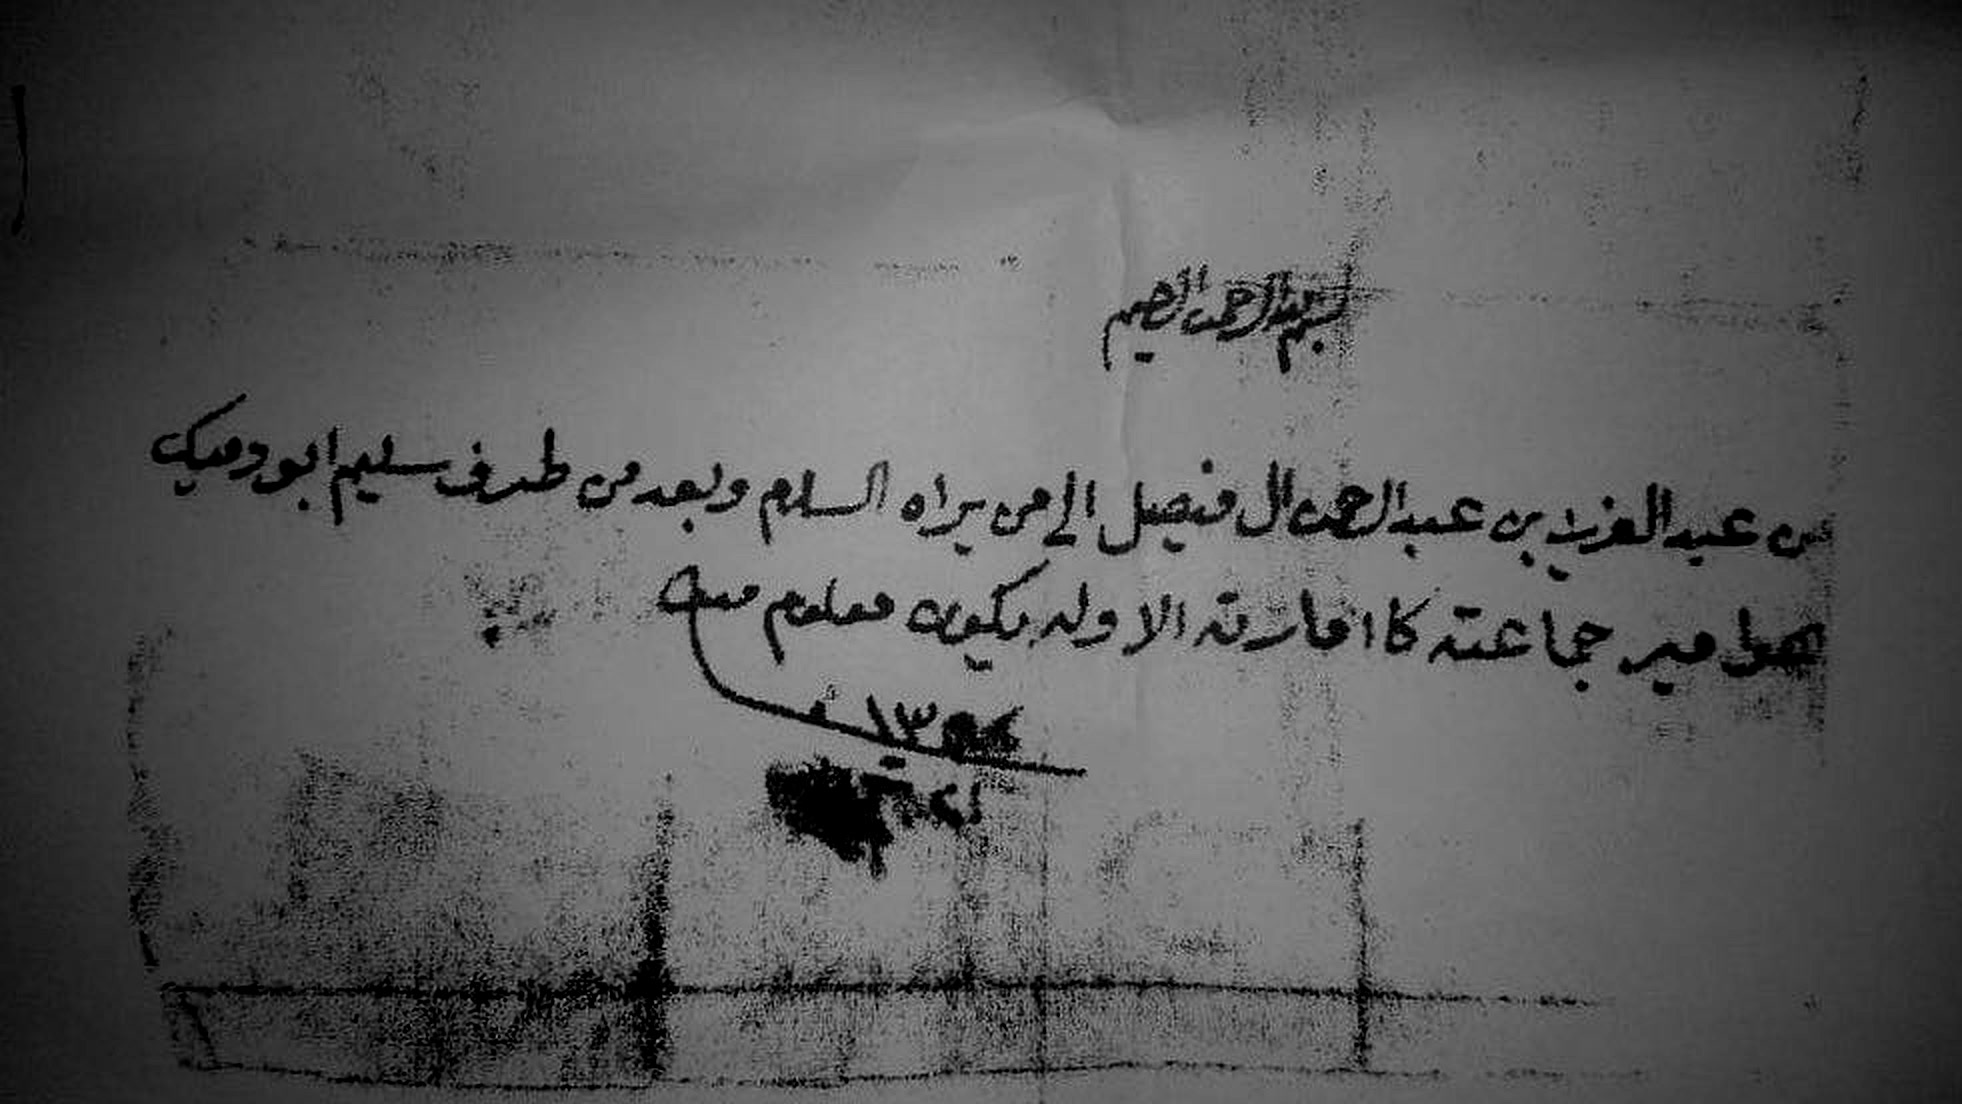 بسم الله الرحمن الرحيم
من عبد العزيز بن عبد الرحمن ال فيصل الى من يراه السلام وبعد من طرف سليم ابو دميك
امير جماعته كا الاوله يكون معلوم
١٣